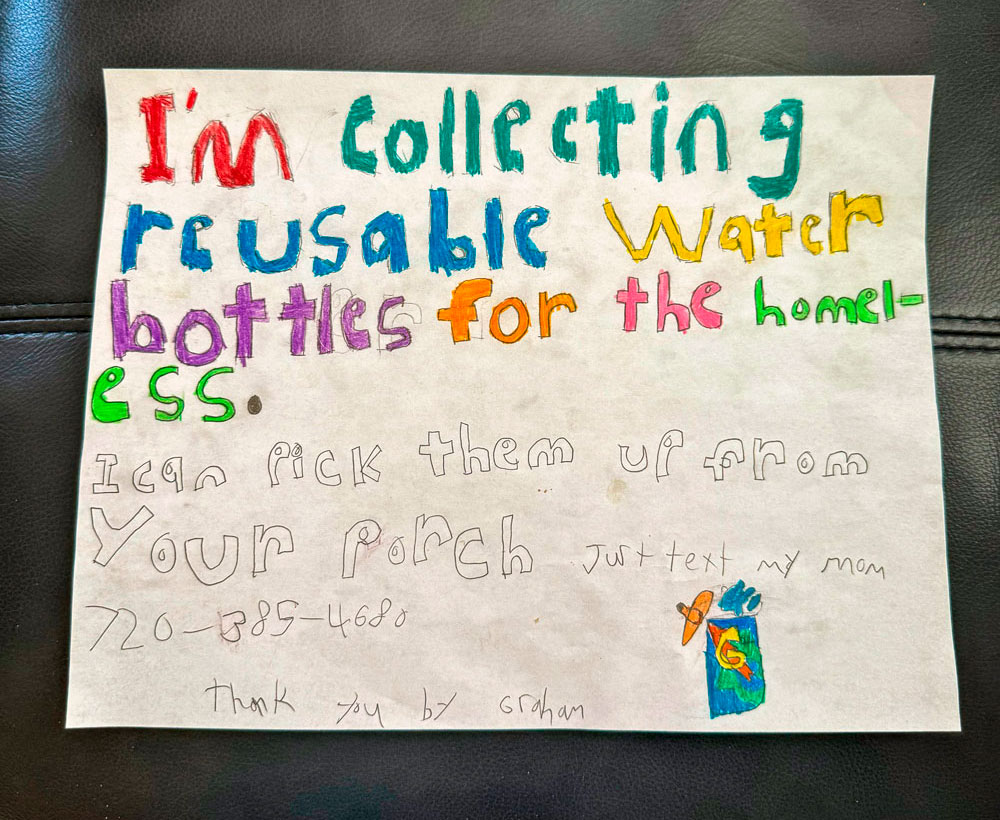 I'm collecting
reusable Water
bottles for the homel-
ess.
I can pick them up from
Your porch Just text my mom
720-385-4680
G
thank you by Graham